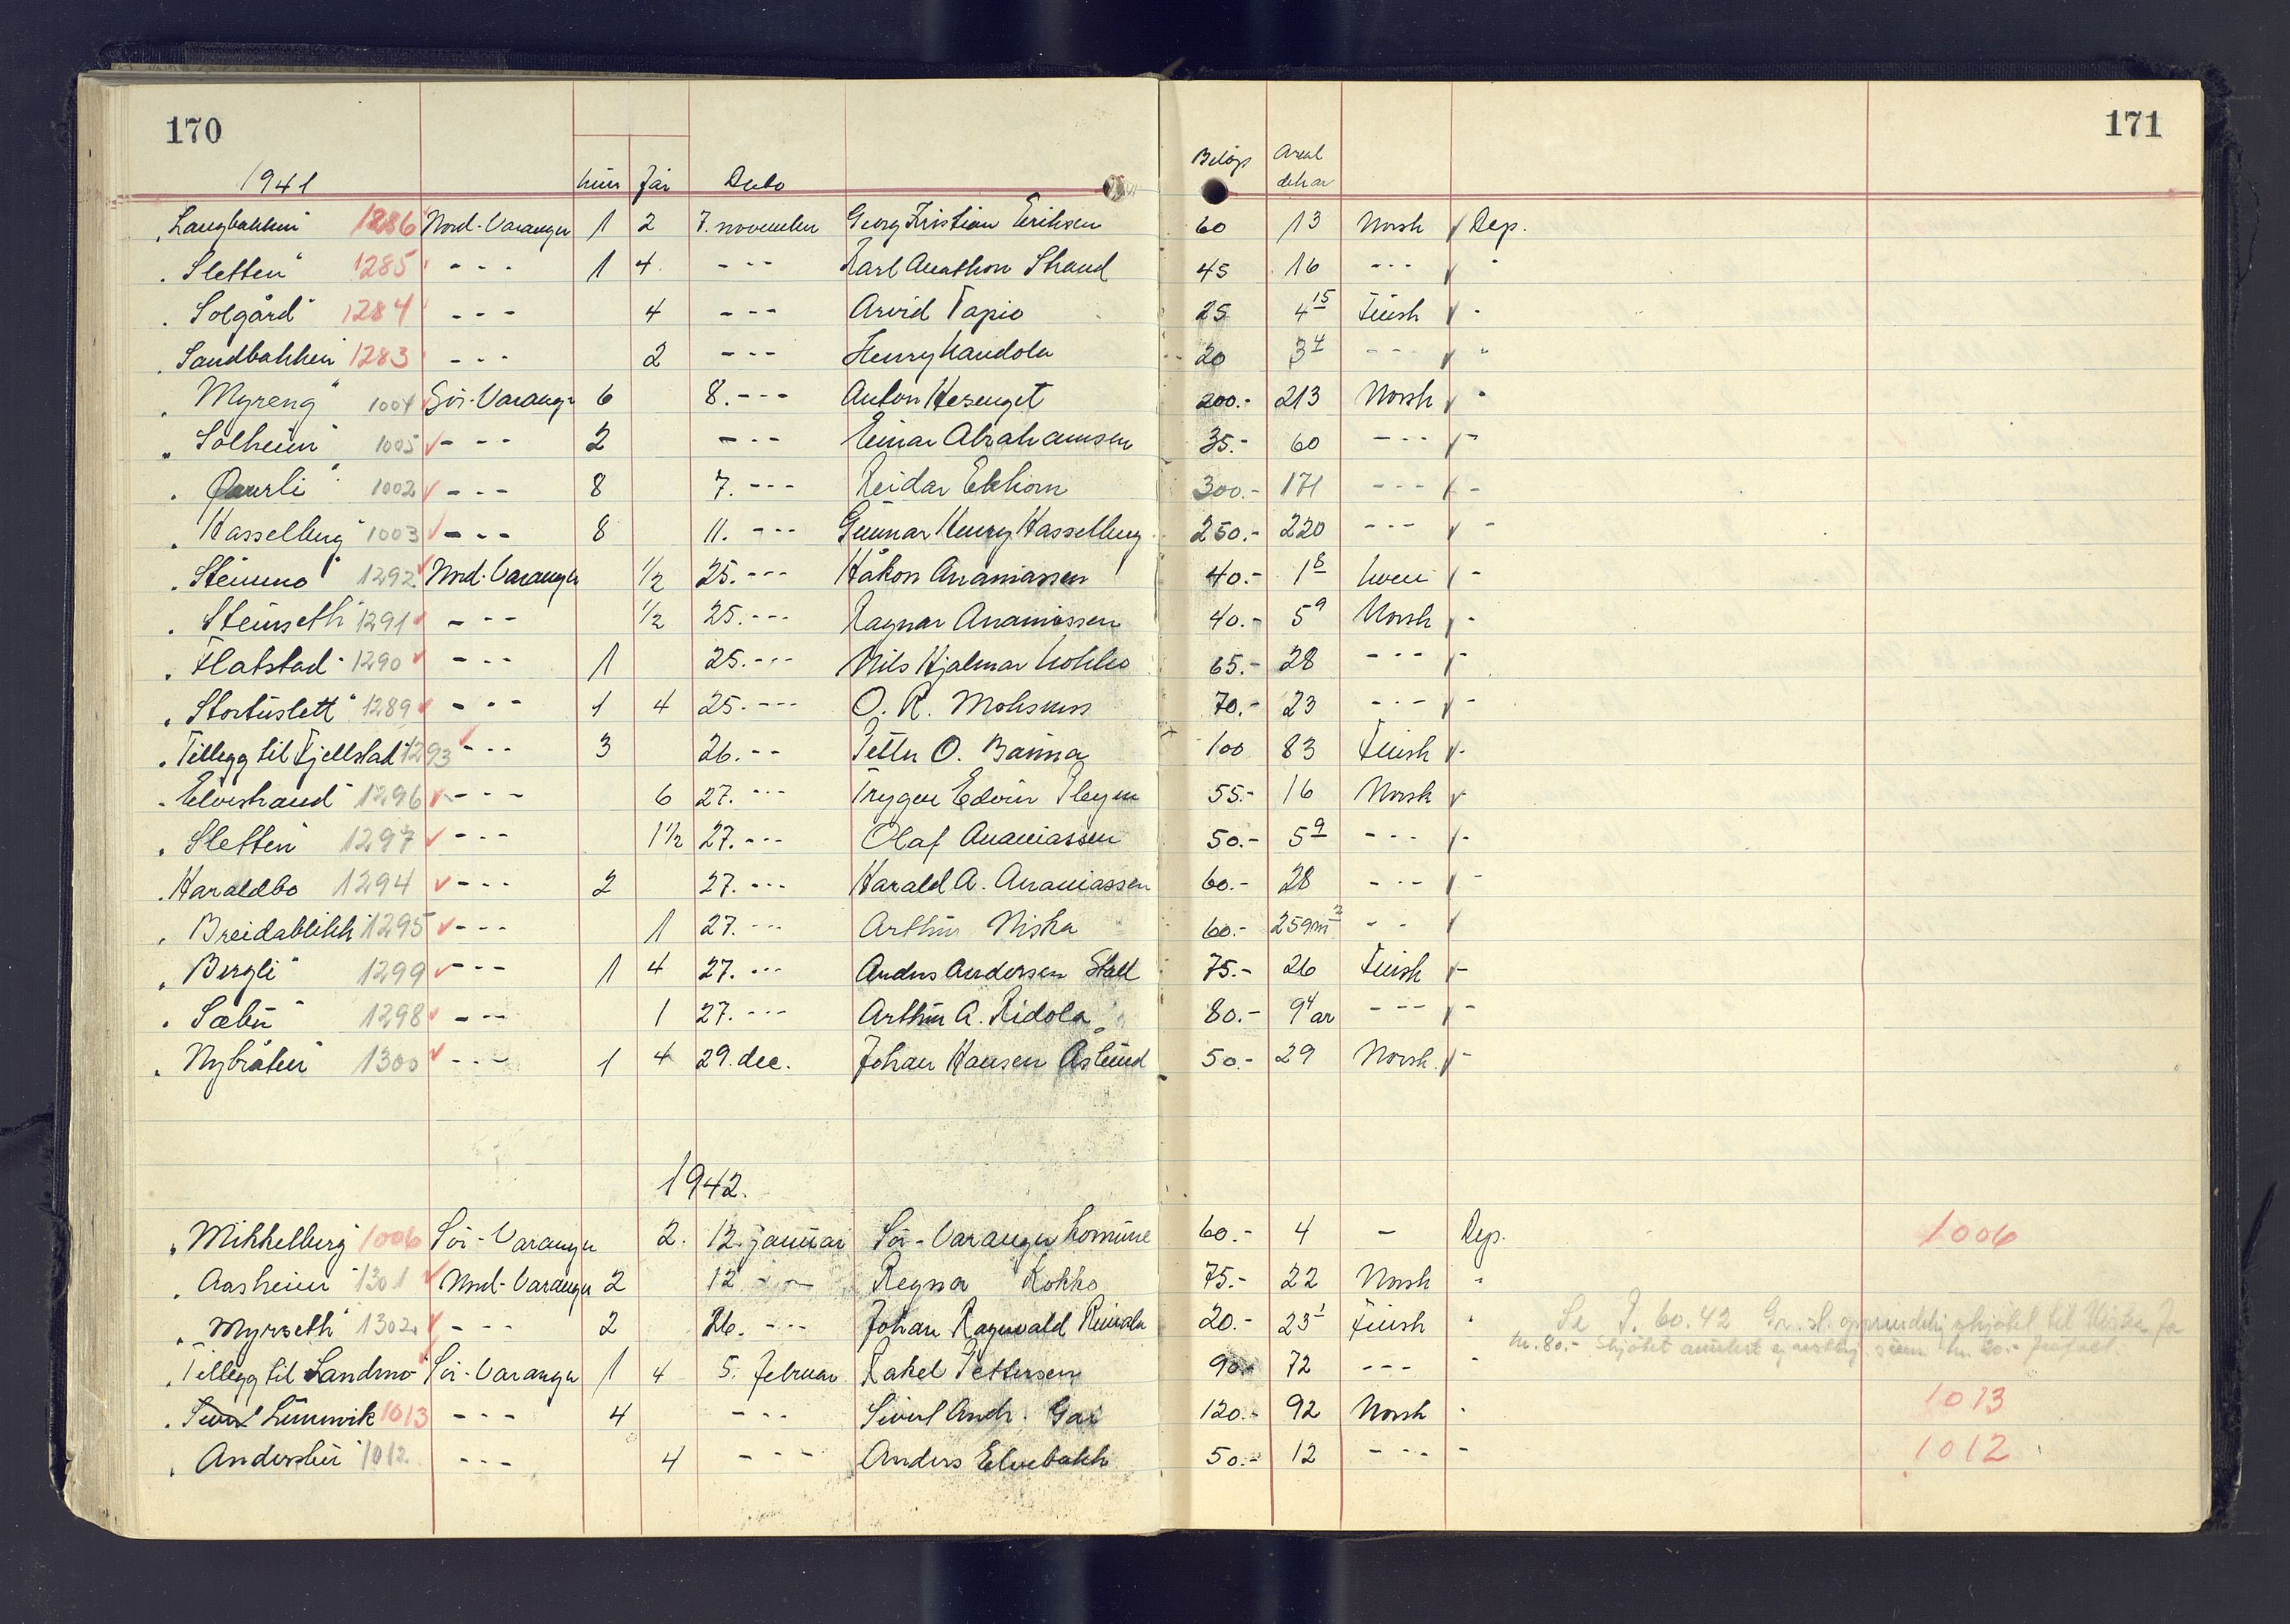 170
171
1941 kuer får Dato Beløp Areal dekar
"Langbakken" 1286 Nord-Varanger 1 2 7. november Georg Kristian Eriksen 60 13 Norsk Dep.
"Sletten" 1285 - - - 1 4 - - - Karl Anathon Strand 45 16 - - - "
"Solgård" 1284 - - - 4 - - - Arvid Tapio 25 4 15 Finsk "
"Sandbakken" 1283 - - - 2 - - - Henry 20 3 4 - - - "
"Myreng" 1004 Sør-Varang. 6 8. - - - Anton 200.- 213 Norsk "
"Solheim" 1005 - - - 2 - - - Einar Abrahamsen 35.- 60 - - - -
"Furli" 1002 - - - 8 7. - - - Reidar Ekhorn 300.- 171 - - - -
"Hasselberg" 1003 - - - 8 11. - - - Gunnar Henry Hasselberg 250.- 220 - - - -
"Steinmo" 1292 Nord-Varanger 1/2 25. - - - Håkon Ananiassen 40.- 1 8 kven -
"Steinseth" 1291 - - - 1/2 25. - - - Ragnar Ananiassen 40.- 5 9 Norsk -
"Flatstad" 1290 - - - 1 25. - - - Nils Hjalmar Kokko 65.- 28 - - - -
"Stortuslett" 1289 - - - 1 4 25. - - - O. R. 70.- 23 - - - -
"Tillegg til Fjellstad" 1293 - - - 3 26. - - Petter O. Banna 100 83 Finsk -
"Elvestrand" 1296 - - - 6 27. - - - Trygve Edvin Pleym 55.- 16 Norsk -
"Sletten" 1297 - - - 1 1/2 27. - - - Olaf Ananiassen 50.- 5 9 - - - -
"Haraldbo 1294 - - - 2 27. - - - Harald A. Ananiassen 60.- 28 - - - -
"Breidablikk" 1295 - - - 1 27. - - - Arthur Niska 60.- 259 m² - -
"Bergli" 1299 - - - 1 4 27. - - - Anders Andersen Stall 75.- 26 Finsk -
"Sæbu" 1298 - - - 1 27. - - - Arthur A. Ridola 80.- 9 4 ar - - - -
"Nybråten" 1300 - - - 1 4 29. dec. Johan Hansen Aslund 50.- 29 Norsk -
1942.
"Mikkelberg" 1006 Sør-Varanger 2. 12. januar Sør-Varanger komune 60.- 4 - Dep. 1006
"Aasheim" 1301 Nord-Varanger 2 12 - - Regna Kokko 75.- 22 Norsk "
"Myrseth" 1302 - - - 2 26. - - - Johan Ragnvald 20.- 23 1 Finsk " Se J. 60.42 Gr. st. opprindelig skjøtet til Niska
kr. 80.- Skjøtet sum kr. 20.-
"Tillegg til Sandmo" Sør-Varanger 1 4 5. februar Rakel Pettersen 90.- 72 - - - "
"Lunnvik 1013 - - - 4 - - - Sivert Andr. 120.- 92 Norsk " 1013
"Andersbu" 1012 - - - 4 - - - Anders Elvebakk 50.- 12 - - - - 1012